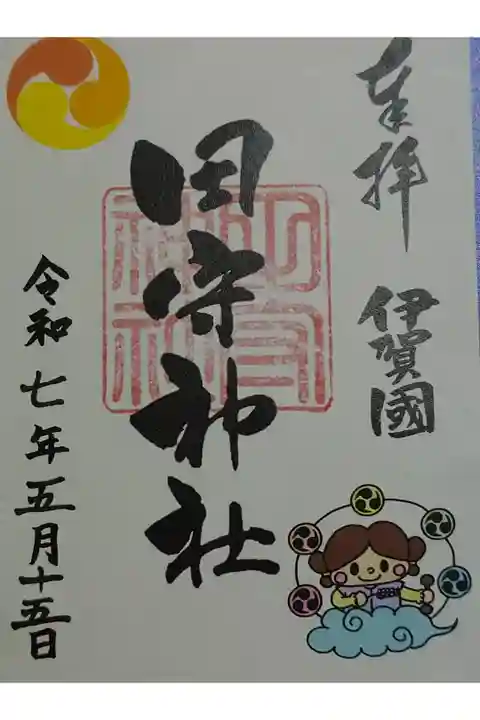 奉拝
伊賀國
田守神社
令和七年五月十五日